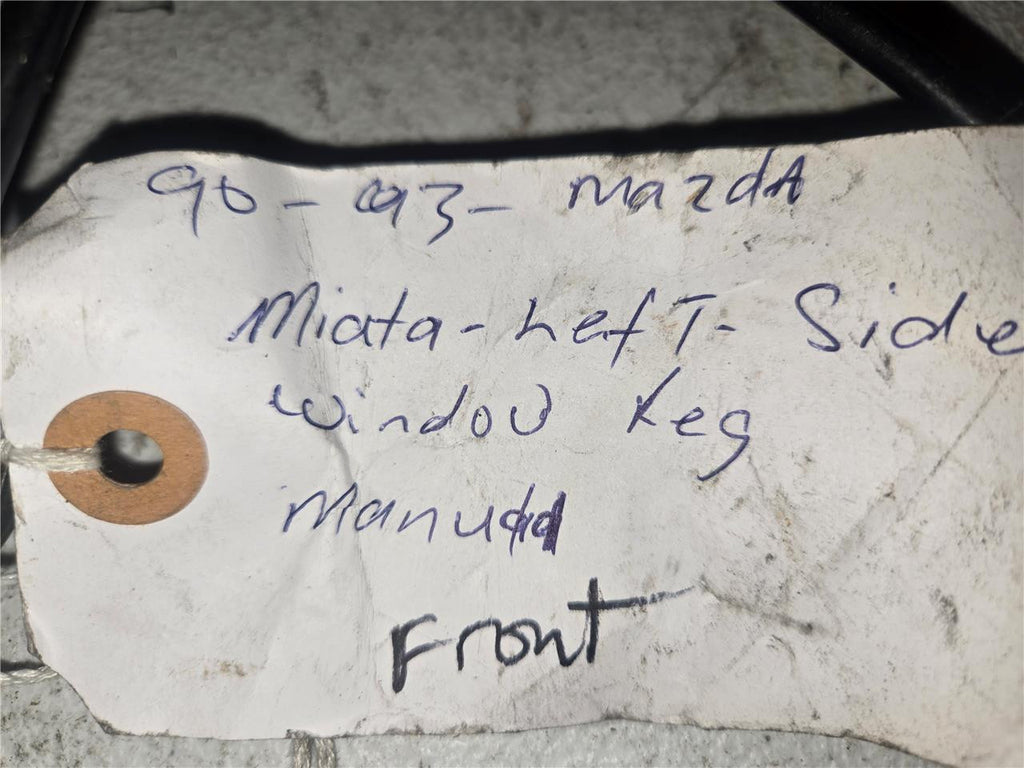 90-93-MazdA
Miata-LefT-Side
window Reg
Manual
Front